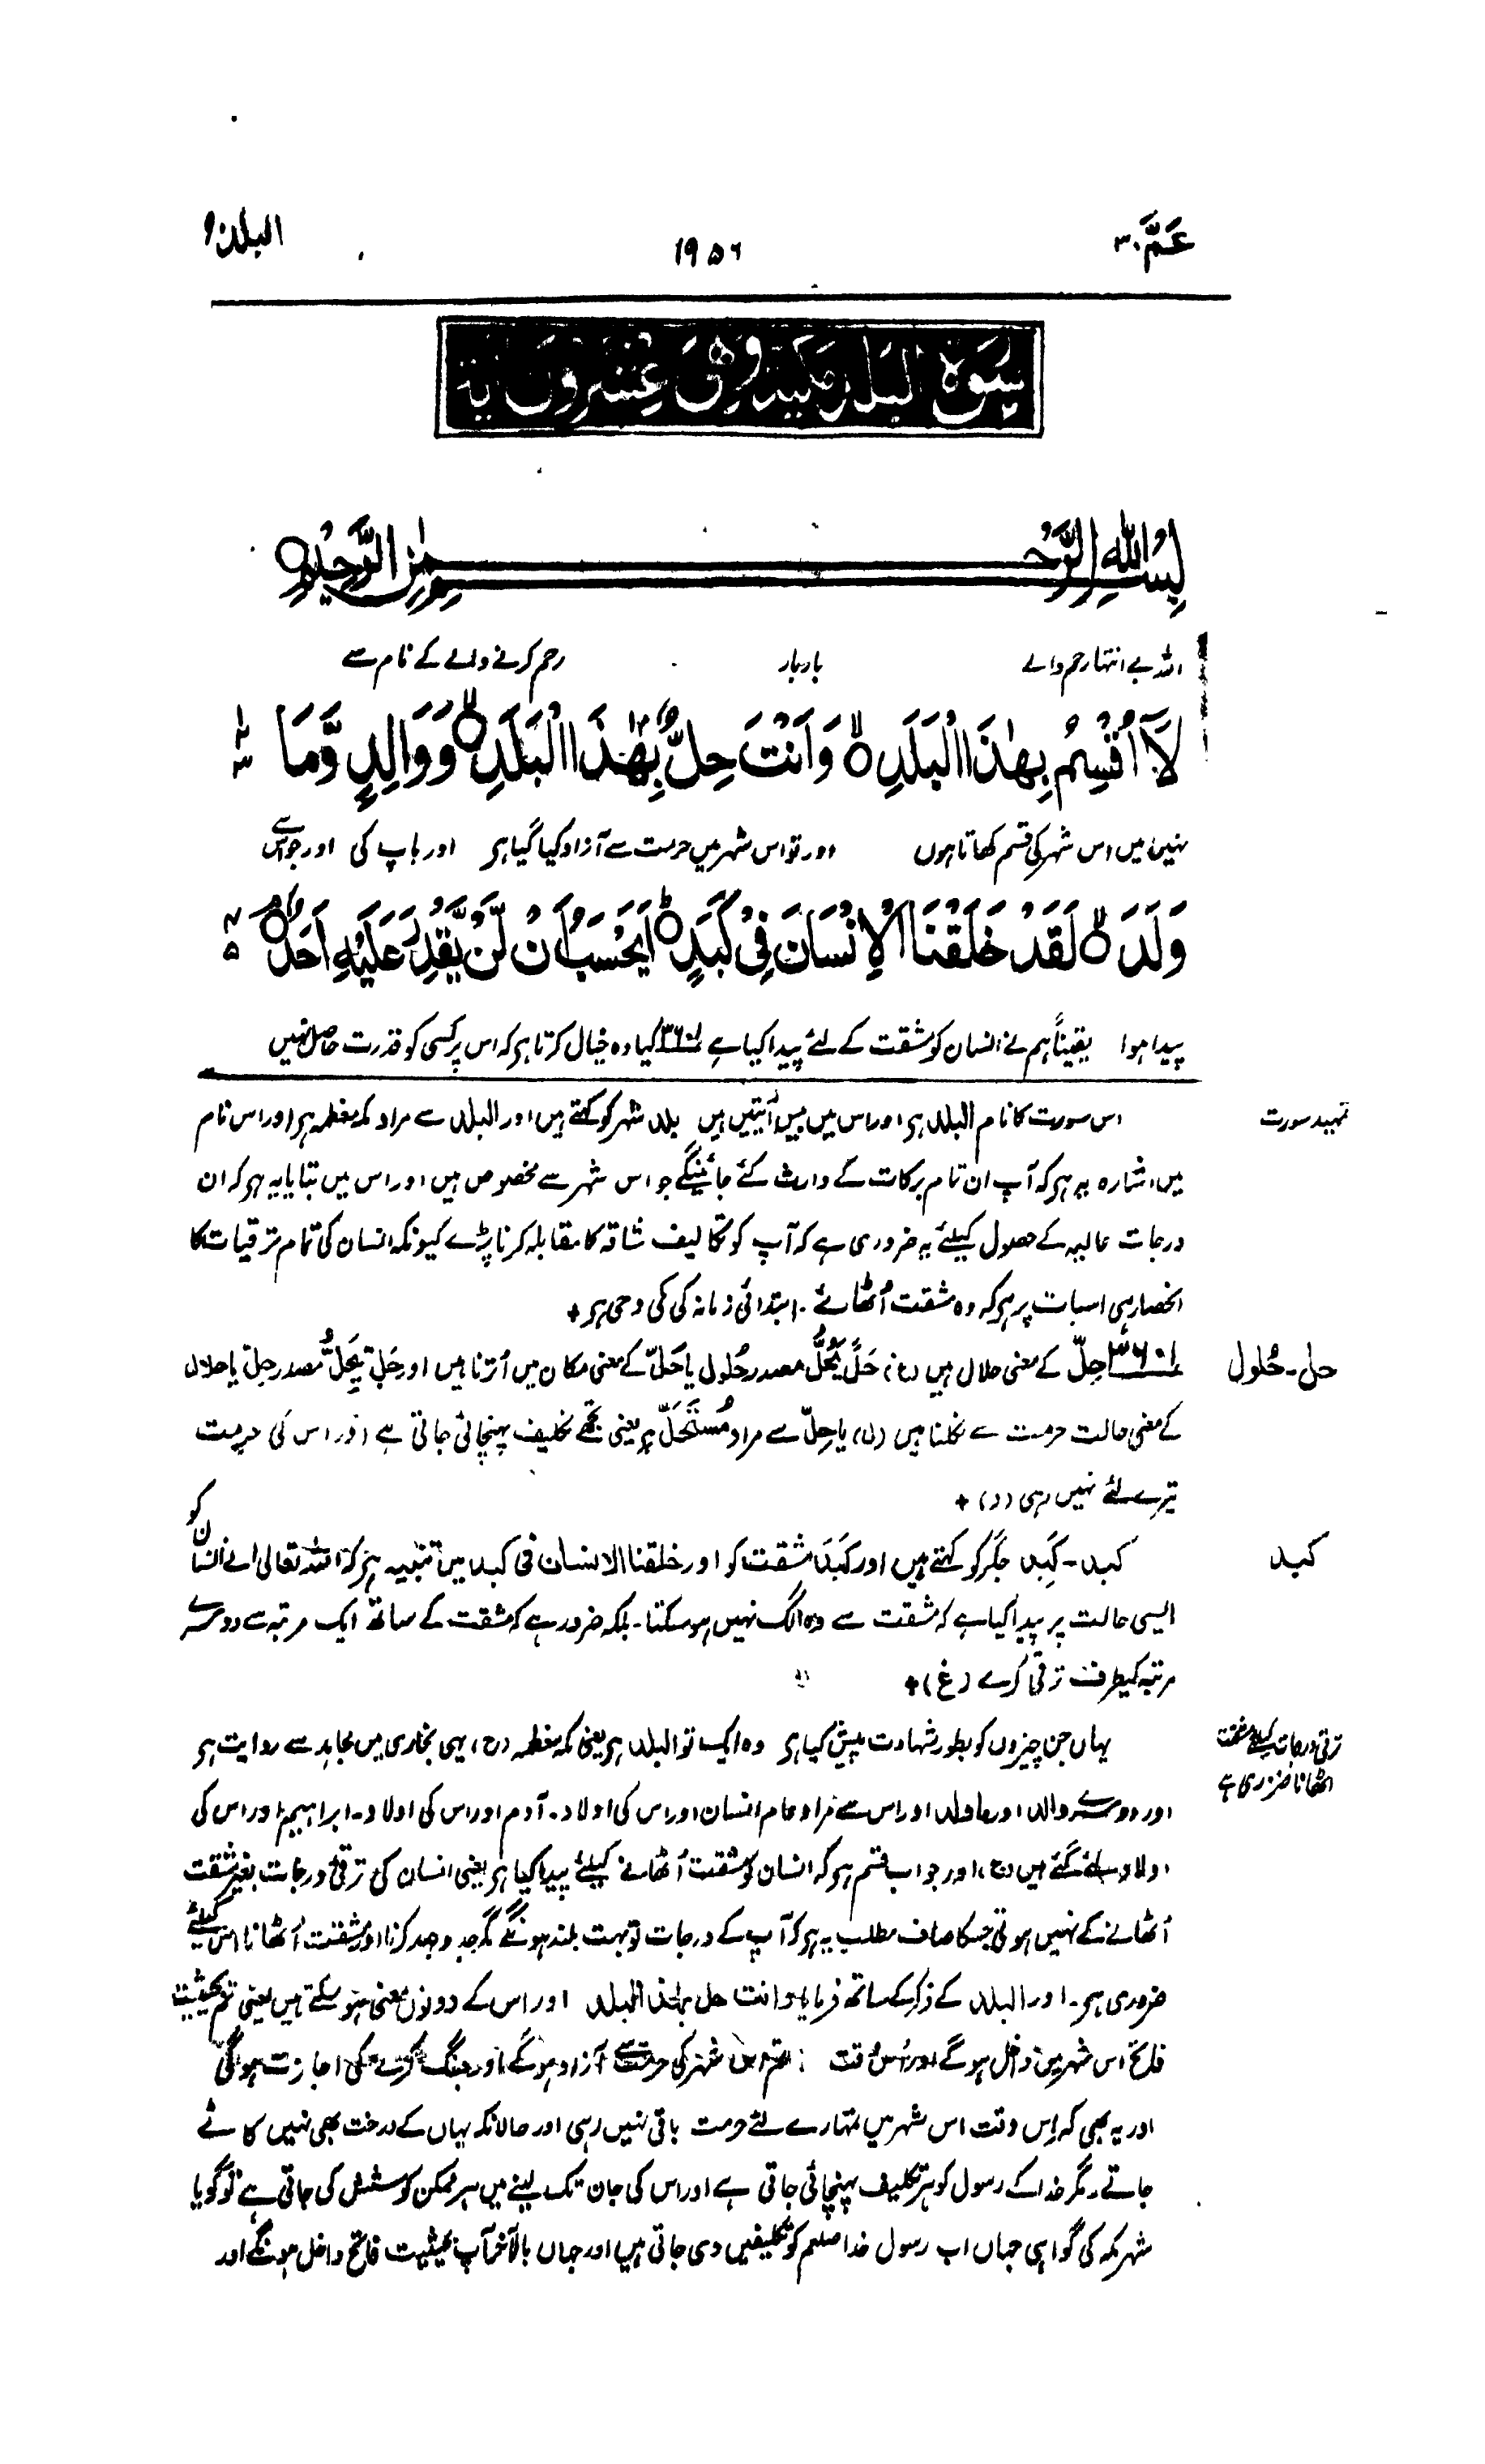 عَمَّ ۳۰
۱۹۵۶
البلد ۹
سورة البلد مكية وهي عشرون آية
بِسْمِ اللّٰهِ الرَّحْمٰنِ الرَّحِيْمِ
اللہ بے انتہا رحم والے بار بار رحم کرنے والے کے نام سے
لَآ اُقْسِمُ بِهٰذَا الْبَلَدِ ۙ وَاَنْتَ حِلٌّۢ بِهٰذَا الْبَلَدِ ۙ وَوَالِدٍ وَّمَا
نہیں میں اس شہر کی قسم کھاتا ہوں اور تو اس شہر میں حرمت سے آزاد کیا گیا ہر اور باپ کی اور جو اس سے
وَلَدَ ۙ لَقَدْ خَلَقْنَا الْاِنْسَانَ فِيْ كَبَدٍ ؕ اَيَحْسَبُ اَنْ لَّنْ يَّقْدِرَ عَلَيْهِ اَحَدٌ ۘ
پیدا ہوا یقیناً ہم نے انسان کو مشقت کے لئے پیدا کیا ہے ۳۶۰۱ کیا وہ خیال کرتا ہر کہ اس پر کسی کو قدرت حاصل نہیں
تمہید سورت
اس سورت کا نام البلد ہر اور اس میں بیس آیتیں ہیں بلد شہر کو کہتے ہیں اور البلد سے مراد مکہ معظمہ ہر اور اس نام
میں اشارہ یہ ہر کہ آپ ان تمام برکات کے وارث کئے جائینگے جو اس شہر سے مخصوص ہیں اور اس میں بتایا یہ ہر کہ ان
درجات عالیہ کے حصول کیلئے یہ ضروری ہے کہ آپ کو تکالیف شاقہ کا مقابلہ کرنا پڑے کیونکہ انسان کی تمام ترقیات کا
انحصار ہی اسبات پر ہر کہ وہ مشقت اُٹھائے۔ ابتدائی زمانہ کی مکی وحی ہر +
حل۔ حُلول
۳۶۰۱ حِلّ کے معنی حلال ہیں (غ) حَلَّ یَحُلُّ مصدر حُلول یا حَلّ کے معنی مکان میں اُترنا ہیں اور حَلَّ یَحِلُّ مصدر حِلّ یا حلال
کے معنی حالت حرمت سے نکلنا ہیں (ل) یا حِلّ سے مراد مُسْتَحَلّ ہر یعنی تجھے تکلیف پہنچائی جاتی ہے اور اس کی حرمت
تیرے لئے نہیں رہی (ر) +
کبد
کبد۔ کَبِد جگر کو کہتے ہیں اور کَبَد مشقت کو اور خلقنا الانسان فی کبد میں تنبیہ ہر کہ اللہ تعالیٰ نے انسان کو
ایسی حالت پر پیدا کیا ہے کہ مشقت سے وہ الگ نہیں ہو سکتا۔ بلکہ ضرور ہے کہ مشقت کے ساتھ ایک مرتبہ سے دوسرے
مرتبہ کیطرف ترقی کرے (غ) +
ترقی درجات کیلئے مشقت
اٹھانا ضروری ہے
یہاں جن چیزوں کو بطور شہادت پیش کیا ہر وہ ایک تو البلد ہر یعنی مکہ معظمہ (ج) یہی بخاری میں مجاہد سے روایت ہر
اور دوسرے والد اور ما ولد اور اس سے مراد عام انسان اور اس کی اولاد۔ آدم اور اس کی اولاد۔ ابراہیم اور اس کی
اولاد لئے گئے ہیں (ج) اور جواب قسم ہر کہ انسان کو مشقت اُٹھانے کیلئے پیدا کیا ہر یعنی انسان کی ترقی درجات بغیر مشقت
اُٹھانے کے نہیں ہوتی جس کا صاف مطلب یہ ہر کہ آپ کے درجات تو بہت بلند ہونگے مگر جد و جہد کرنا اور مشقت اُٹھانا اس کیلئے
ضروری ہر۔ اور البلد کے ذکر کے ساتھ فرمایا وانت حل بھذا البلد اور اس کے دونوں معنی ہو سکتے ہیں یعنی تم بحیثیت
فاتح اس شہر میں داخل ہو گے اور اُس وقت تم اس شہر کی حرمت سے آزاد ہو گے اور جنگ کرنے کی اجازت ہوگی
اور یہ بھی کہ اِس وقت اس شہر میں تمہارے لئے حرمت باقی نہیں رہی اور حالانکہ یہاں کے درخت بھی نہیں کاٹے
جاتے۔ مگر خدا کے رسول کو ہر تکلیف پہنچائی جاتی ہے اور اس کی جان تک لینے میں ہر ممکن کوشش کی جاتی ہے تو گویا
شہر مکہ کی گواہی جہاں اب رسول خدا صلعم کو تکلیفیں دی جاتی ہیں اور جہاں بالآخر آپ بحیثیت فاتح داخل ہونگے اور